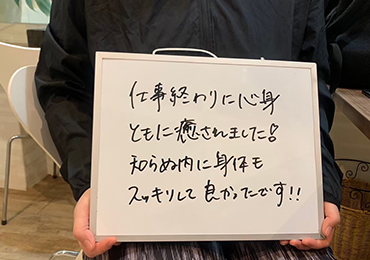 仕事終わりに心身
ともに癒されました!
知らぬ内に身体も
スッキリして良かったです!!